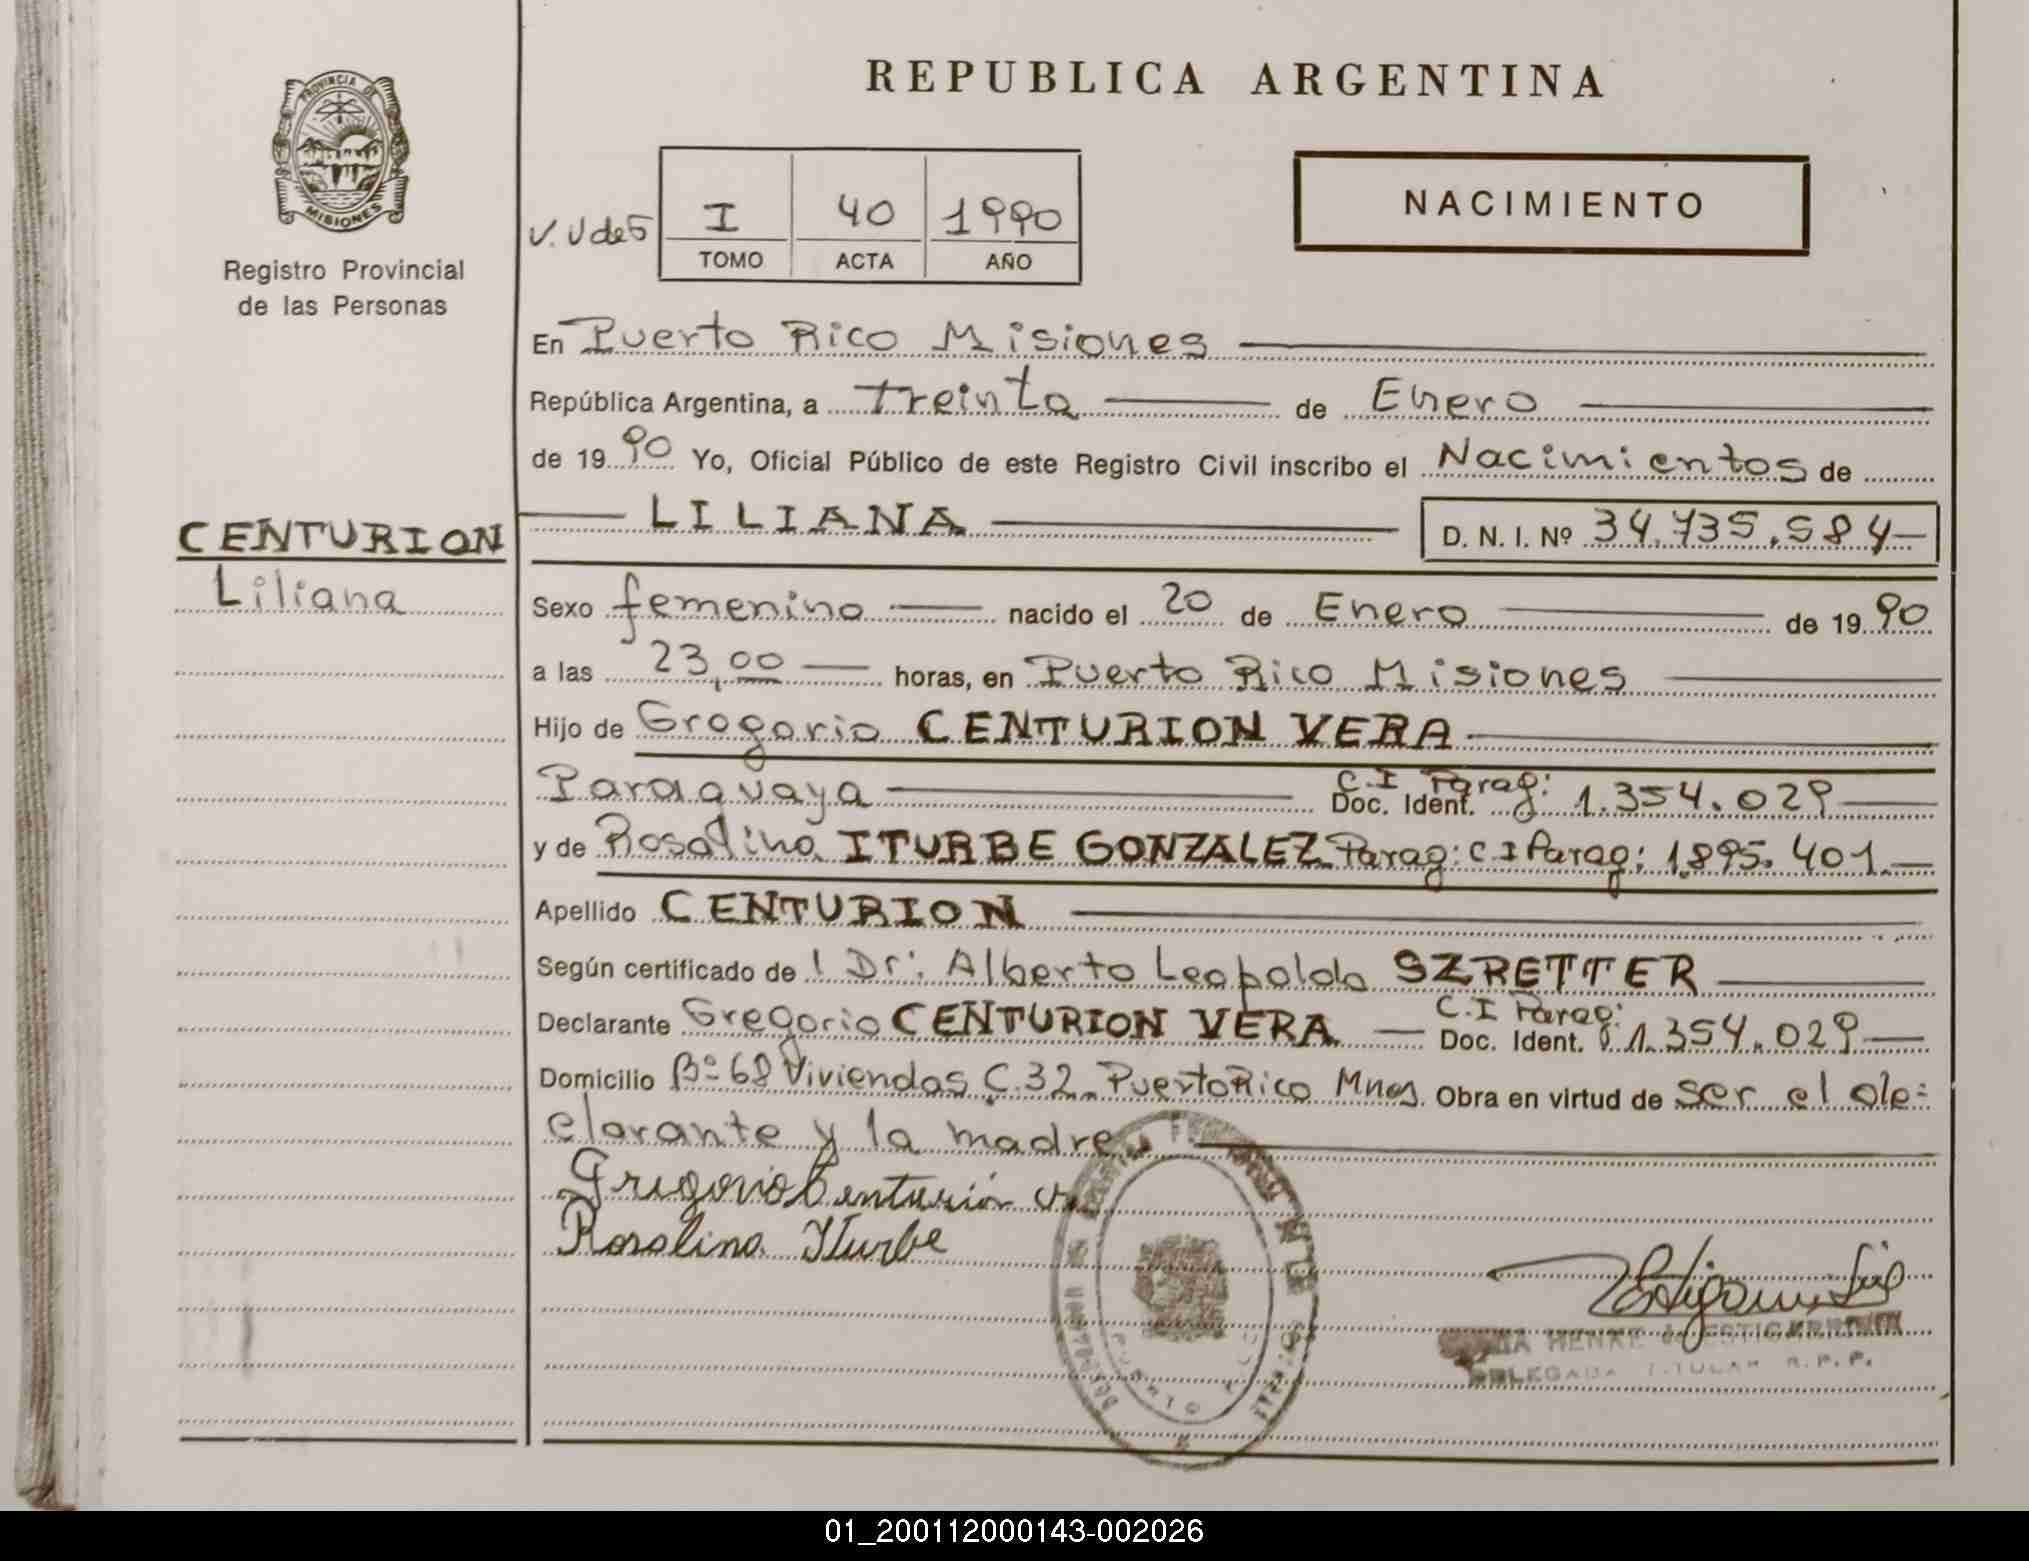 PROVINCIA DE
MISIONES
Registro Provincial
de las Personas
CENTURION
Liliana
REPUBLICA ARGENTINA
NACIMIENTO
V. U de 5
I 40 1990
TOMO ACTA AÑO
En Puerto Rico Misiones
República Argentina, a treinta de Enero
de 1990 Yo, Oficial Público de este Registro Civil inscribo el Nacimientos de
LILIANA D. N. I. Nº 34.735.584
Sexo femenino nacido el 20 de Enero de 1990
a las 23,00 horas, en Puerto Rico Misiones
Hijo de Grogorio CENTURION VERA
Paraguaya C.I Parag: Doc. Ident. 1.354.029
y de Rosalina ITURBE GONZALEZ Parag: C I Parag: 1.895.401
Apellido CENTURION
Según certificado de ! Dr: Alberto Leopoldo SZRETTER
Declarante Gregorio CENTURION VERA C.I Parag: Doc. Ident. 1.354.029
Domicilio Bº 68 Viviendas C.32 Puerto Rico Mnes. Obra en virtud de ser el de=
clarante y la madre
Gregorio Centurión V
Rosalina Iturbe
HENKE
DELEGADA TITULAR R.P.P.
PUERTO RICO
01_200112000143-002026